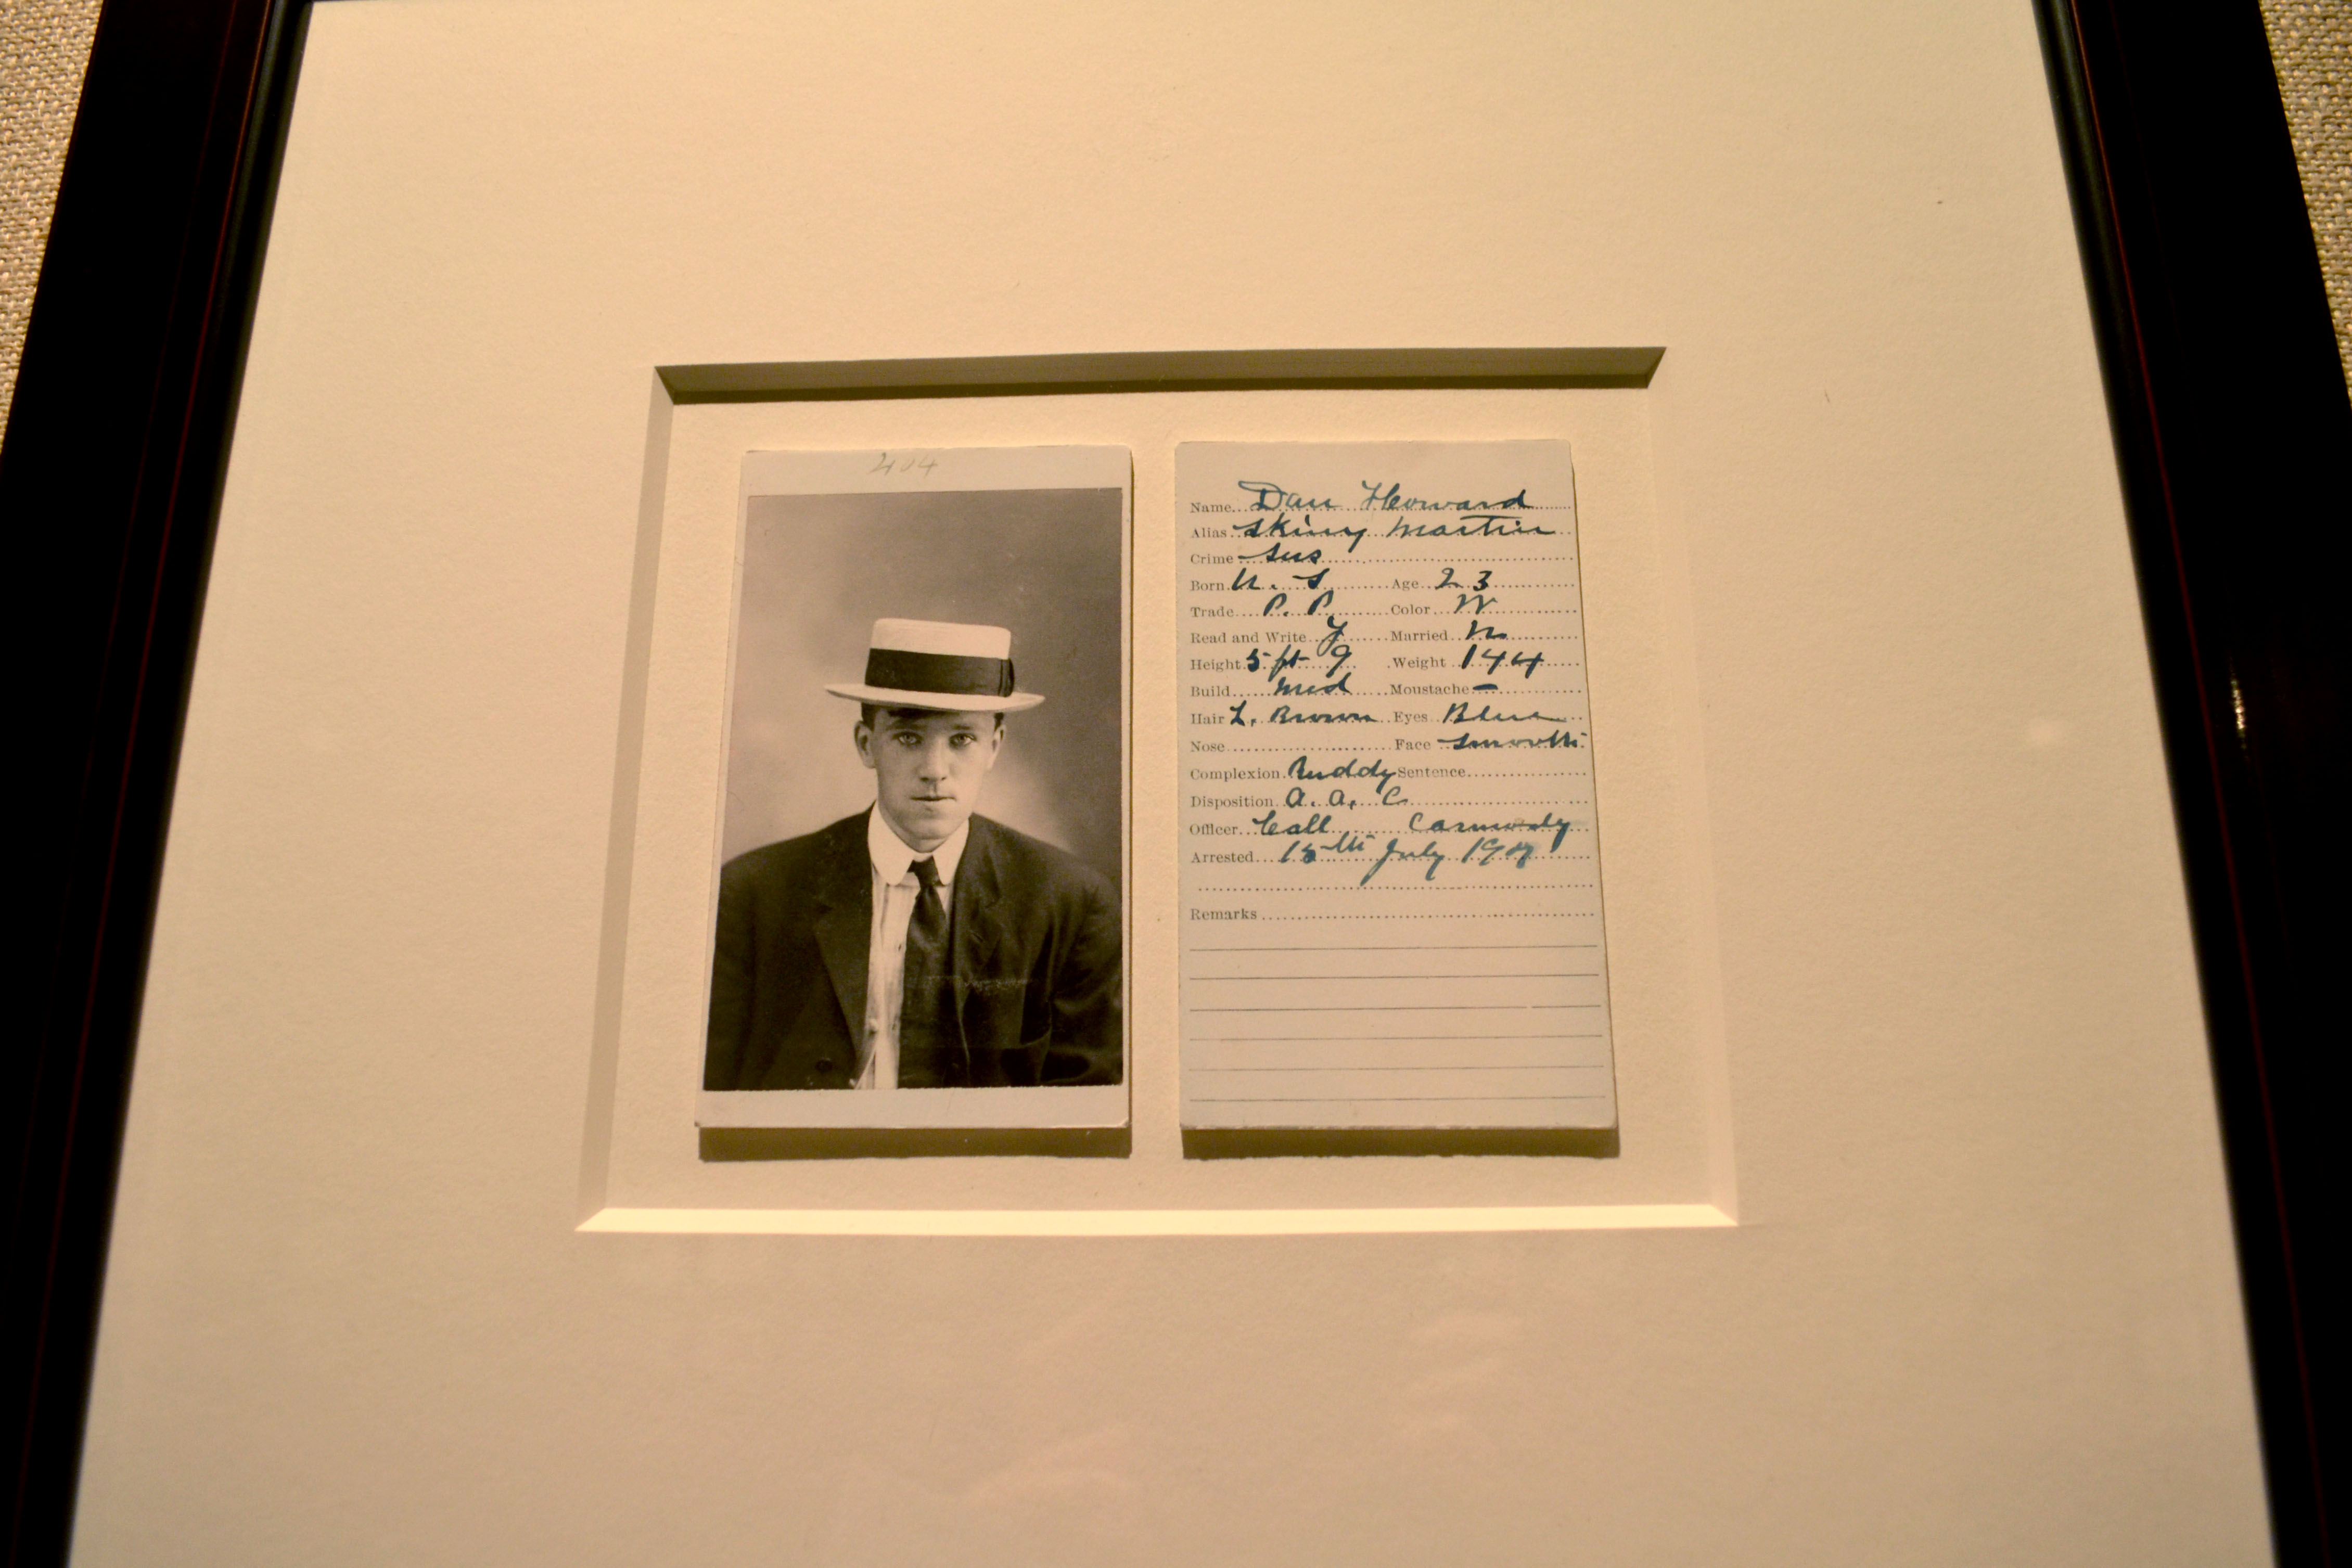 404
Name Dan Howard
Alias Skiny Martin
Crime Sus
Born U. S Age 23
Trade P. P. Color W
Read and Write Y Married M
Height 5 ft 9 Weight 144
Build Med Moustache –
Hair L. Brown Eyes Blue
Nose Face Smooth
Complexion Ruddy Sentence
Disposition A. A. C
Officer Call
Arrested 15th July
Remarks